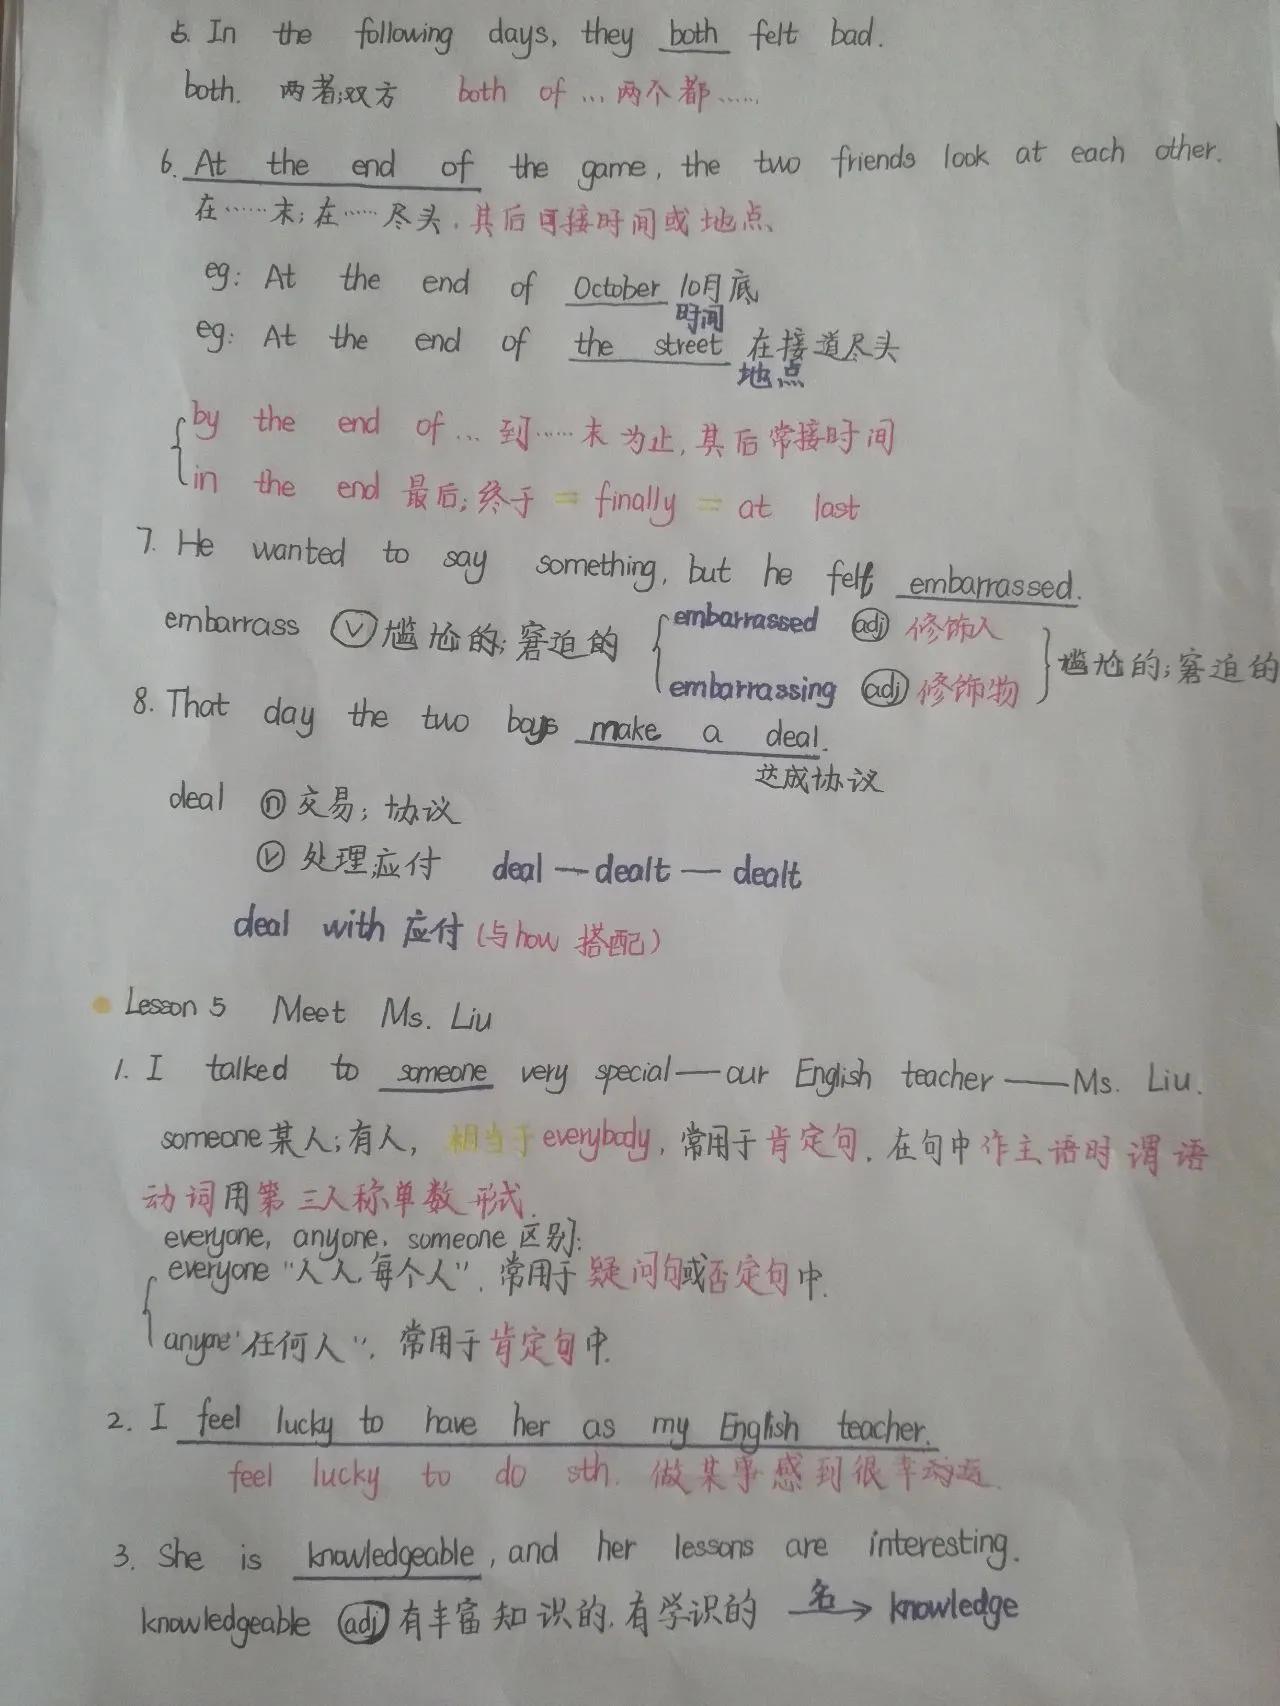 5. In the following days, they both felt bad.
both. 两者;双方 both of … 两个都……
6. At the end of the game, the two friends look at each other.
在……末;在……尽头.其后可接时间或地点.
eg: At the end of October 10月底
时间
eg: At the end of the street 在接道尽头
地点
by the end of … 到……末为止,其后常接时间
in the end 最后;终于 = finally = at last
7. He wanted to say something, but he felt embarrassed.
embarrass v 尴尬的;窘迫的 embarrassed adj 修饰人
embarrassing adj 修饰物 尴尬的;窘迫的
8. That day the two boys make a deal.
达成协议
deal n 交易;协议
v 处理;应付 deal — dealt — dealt
deal with 应付(与how搭配)
Lesson 5 Meet Ms. Liu
1. I talked to someone very special — our English teacher — Ms. Liu.
someone某人;有人, 相当于everybody,常用于肯定句.在句中作主语时谓语
动词用第三人称单数形式.
everyone, anyone, someone区别:
everyone "人人,每个人". 常用于疑问句或否定句中.
anyone"任何人". 常用于肯定句中.
2. I feel lucky to have her as my English teacher.
feel lucky to do sth. 做某事感到很幸运.
3. She is knowledgeable, and her lessons are interesting.
knowledgeable adj 有丰富知识的.有学识的 名→ knowledge